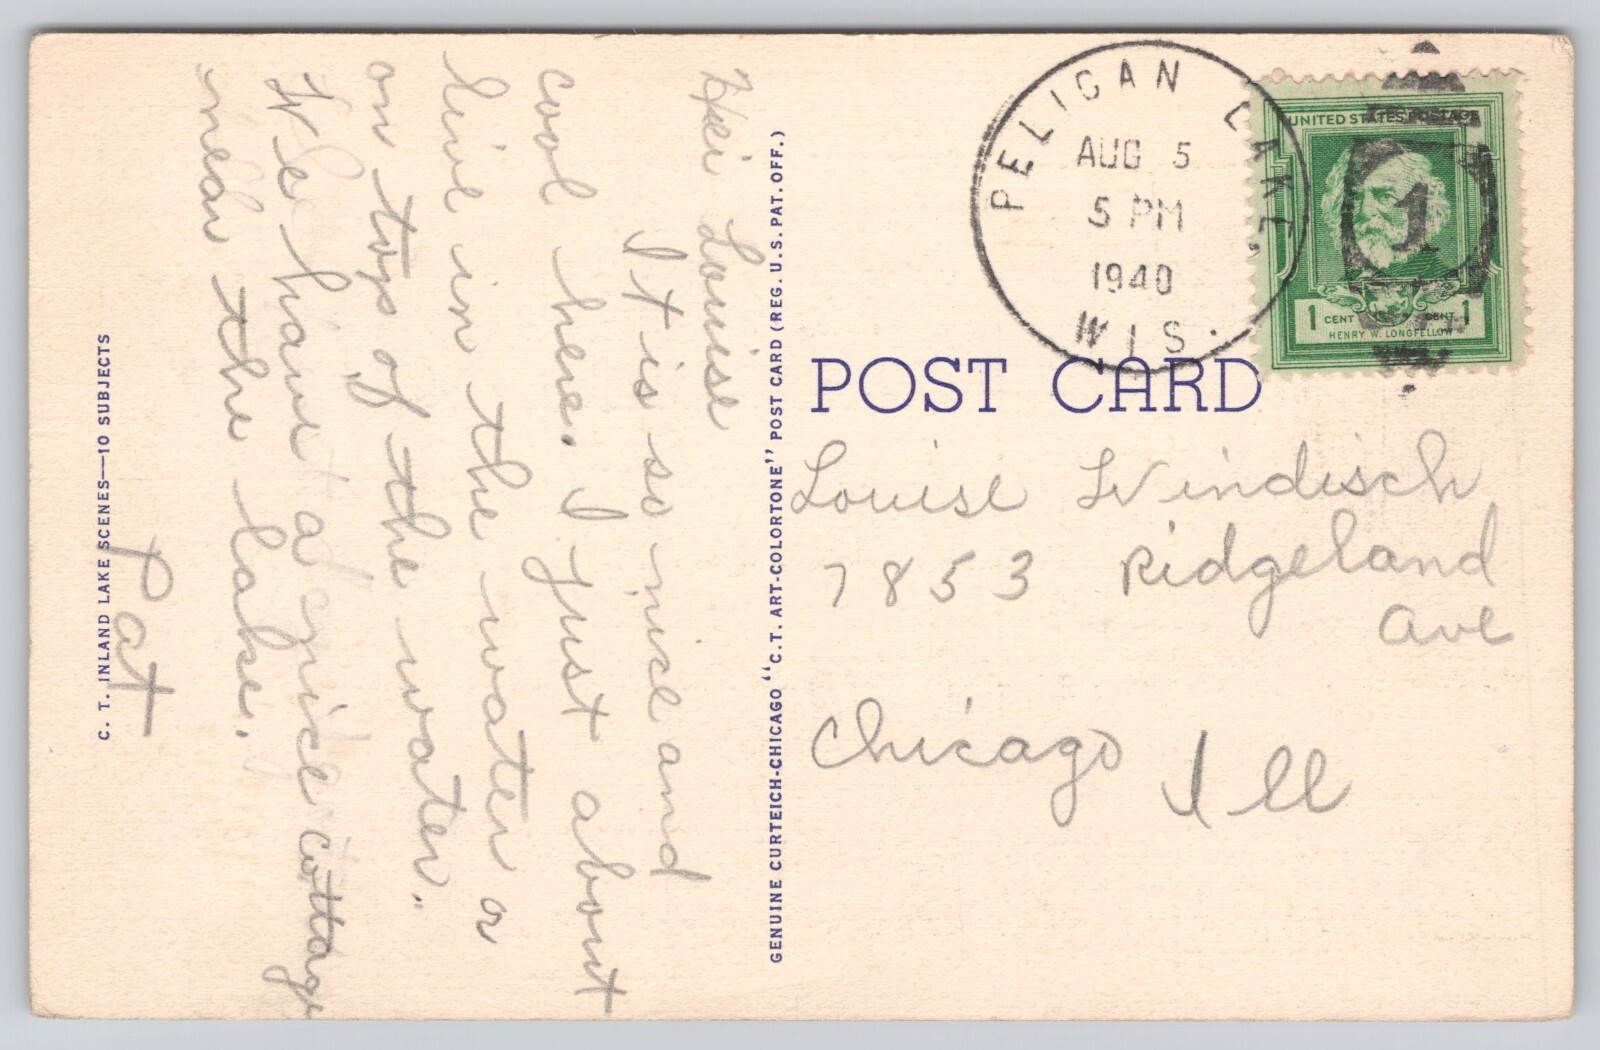 Hei Louise
It is so nice and
cool here. I just about
live in the water or
on top of the water.
We have a nice cottage
near the lake.
Pat
C. T. INLAND LAKE SCENES—10 SUBJECTS
GENUINE CURTEICH-CHICAGO "C.T. ART-COLORTONE" POST CARD (REG. U.S. PAT. OFF.)
PELICAN LAKE.
AUG 5
5 PM
1940
WIS.
UNITED STATES POSTAGE
1
1 CENT CENT 1
HENRY W. LONGFELLOW
POST CARD
Louise Windisch
7853 Ridgeland
Ave
Chicago Ill